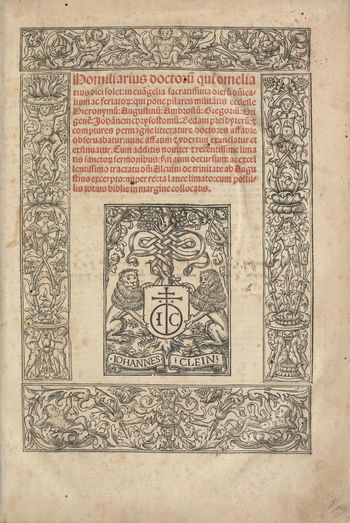 Homiliarius doctorū qui omelia
rius dici solet: in euāgelia sacratissima dierū dn̄ica
lium ac feriatoꝝ: qui pone pilares militātis ecclesie
Hieronymū: Augustinū: Ambrosiū: Gregoriū: Ori
genē: Johānem chrysostomū: Bedam presbyterū: ⁊
complures permagne litterature doctores assatore
obseruabatur: nunc affatim ⁊
Cum additis nouiter ⁊ recentissime lima
tis sanctoꝝ sermonibus:
lentissimo tractatu dn̄i Alcuini de trinitate ab Augu
stino excerpto: nuper recta lance limatoꝝ cum postil
lis totius biblie in margine collocatis.
I C
IOHANNES CLEIN